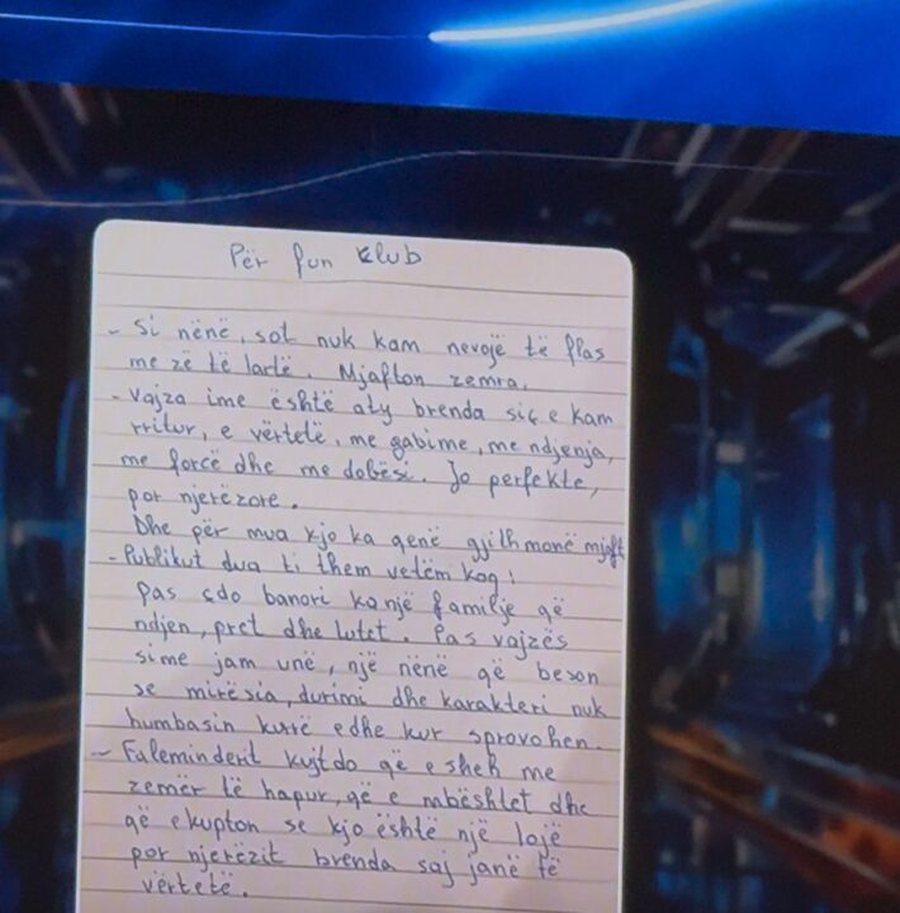 Për fun klub
- Si nënë, sot nuk kam nevojë të flas
me zë të lartë. Mjafton zemra.
- Vajza ime është aty brenda siç e kam
rritur, e vërtetë, me gabime, me ndjenja,
me forcë dhe me dobësi. Jo perfekte,
por njerëzore.
Dhe për mua kjo ka qenë gjithmonë mjaft
- Publikut dua ti them vetëm kaq:
Pas çdo banori ka një familje që
ndjen, pret dhe lutet. Pas vajzës
sime jam unë, një nënë që beson
se mirësia, durimi dhe karakteri nuk
humbasin kurrë edhe kur sprovohen.
- Faleminderit kujtdo që e sheh me
zemër të hapur, që e mbështet dhe
që e kupton se kjo është një lojë
por njerëzit brenda saj janë të
vërtetë.